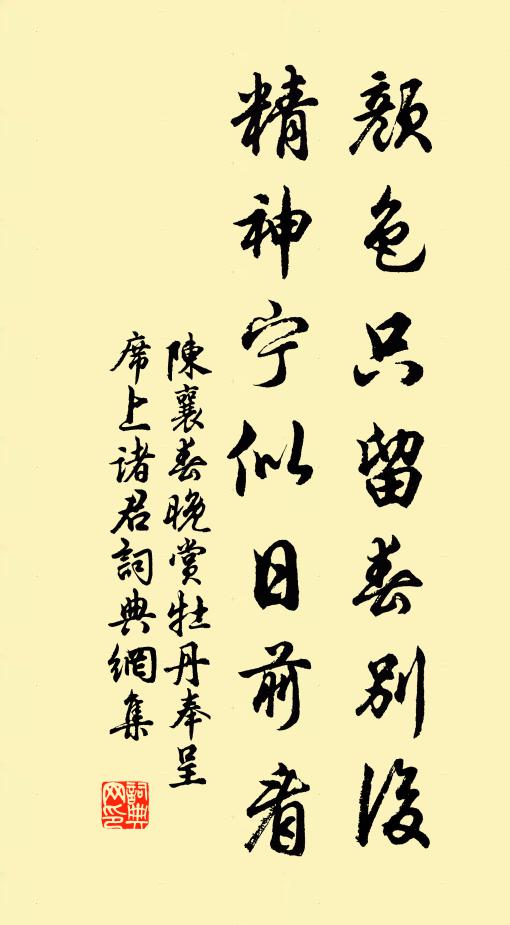 顏色只留春別後
精神宁似日前看
陳襄春晚賞牡丹奉呈
席上諸君詞典網集
詞典網印